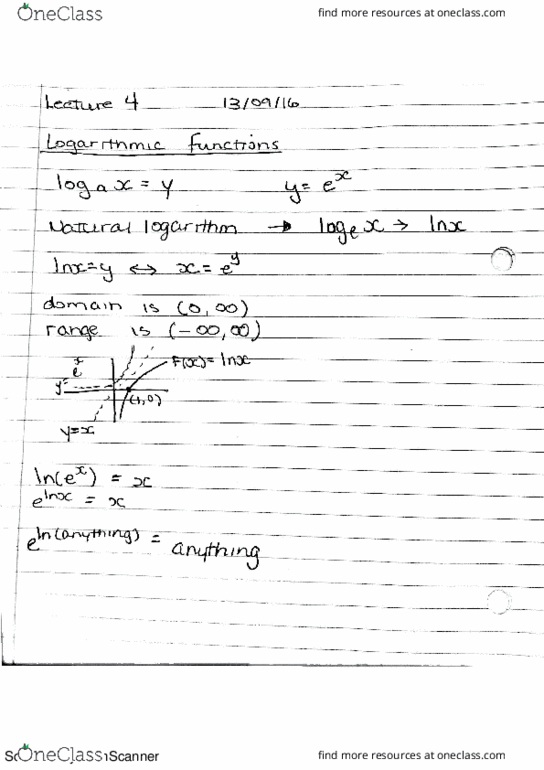 OneClass find more resources at oneclass.com
Lecture 4 13/09/16
Logarithmic functions
log_a x = y y = e^x
Natural logarithm → log_e x → lnx
lnx=y ⟺ x = e^y
domain is (0, ∞)
range is (-∞, ∞)
f(x) = lnx
y=e^x
(1,0)
y=x
ln(e^x) = x
e^lnx = x
e^ln(anything) = anything
OneClass Scanner find more resources at oneclass.com